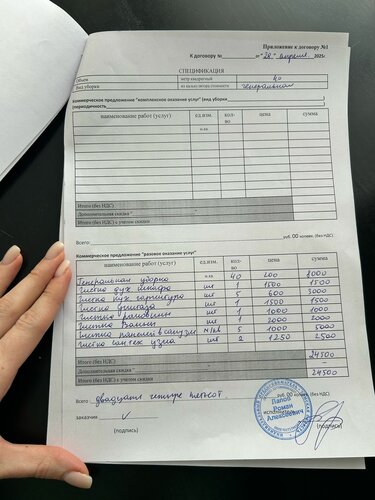 Приложение к договору №1
К договору №____ от "28" апреля 2025г
СПЕЦИФИКАЦИЯ
Объем метр квадратный 40
Вид уборки генеральная
Коммерческое предложение "комплексное оказание услуг" (вид уборки
(периодичность
наименование работ (услуг) ед.изм. кол-во цена сумма
п.м.
Итого (без НДС)
Дополнительная скидка -
Итого (без НДС) с учетом скидки
Всего: руб. 00 копеек. (без НДС)
Коммерческое предложение "разовое оказание услуг"
наименование работ (услуг) ед.изм. кол-во цена сумма
Генеральная уборка 40 200 8000
Чистка дух шкафа шт 1 1500 1500
Чистка кух гарнитура шт 5 600 3000
Чистка фасада шт 1 1500 1500
Чистка раковины шт 1 1000 1000
Чистка Ванны шт 1 2000 2000
Чистка панели в санузле 5 1000 5000
Чистка сантех узла шт 2 1250 2500
Итого (без НДС) 24500
Дополнительная скидка - -
Итого (без НДС) с учетом скидки 24500
Всего двадцать четыре пятьсот руб. 00 копеек. (без НДС)
заказчик исполнитель
(подпись) (подпись)
Лапов
Роман
Алексеевич